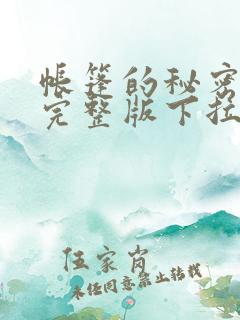 帐篷的秘密
完整版下拉
伍家岗
未经同意禁止转载